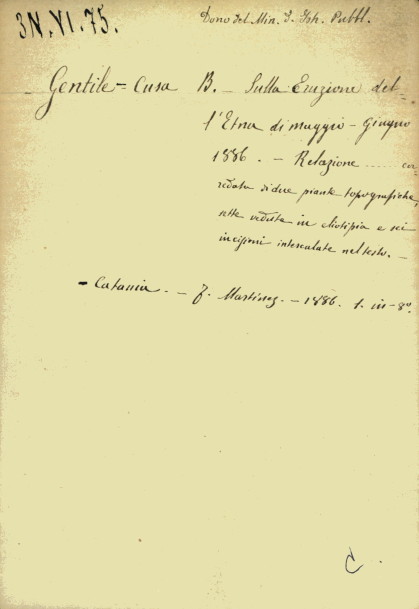 3N.VI.75.
Dono del Min. d. Istr. Pubbl.
Gentile = Cusa B. — Sulla Eruzione del-
l'Etna di maggio - Giugno
1886. — Relazione ..... cor
redata di due piante topografiche,
sette vedute in eliotipia e sei
incisioni intercalate nel testo. —
- Catania. — F. Martinez. — 1886. 1. in-8º.
C